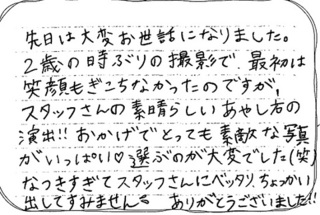 先日は大変お世話になりました。
2歳の時ぶりの撮影で、最初は
笑顔もぎこちなかったのですが、
スタッフさんの素晴らしいあやし方の
演出!! おかげでとっても素敵な写真
がいっぱい♡ 選ぶのが大変でした(笑)
なつきすぎてスタッフさんにベッタリ、ちょっかい
出してすみません。 ありがとうございました!!